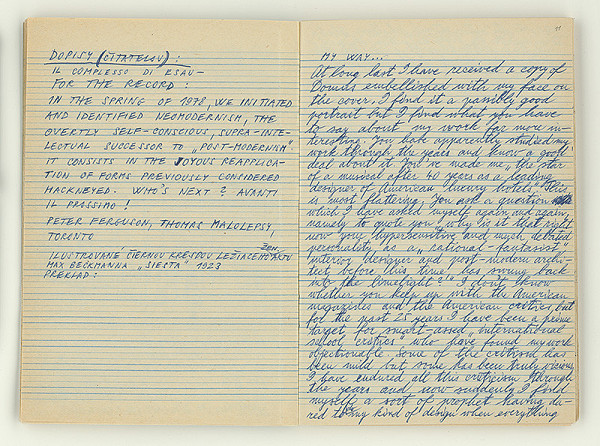 DOPISY (ČITATEĽOV):
IL COMPLESSO DI ESAU —
FOR THE RECORD:
IN THE SPRING OF 1978, WE INITIATED
AND IDENTIFIED NEOMODERNISM, THE
OVERTLY SELF-CONSCIOUS, SUPRA-INTE-
LECTUAL SUCCESSOR TO „POST-MODERNISM"
IT CONSISTS IN THE JOYOUS REAPPLICA-
TION OF FORMS PREVIOUSLY CONSIDERED
HACKNEYED. WHO'S NEXT? AVANTI
IL PRASSIMO!
PETER FERGUSON, THOMAS MALOLEPSY,
TORONTO
ŽEN.
ILUSTROVANE ČIERNOU KRESBOU LEŽIACEHO AKTU
MAX BECKMANNA „SIESTA" 1923
PREKLAD:
11
MY WAY...
At long last I have received a copy of
Domus embellished with my face on
the cover. I find it a passibly good
portrait but I find what you have
to say about my work far more in-
teresting. You have apparently studied my
work through the years and know a good
deal about it. You've made me „the star
of a musical after 40 years as a leading
designer of American luxury hotels." This
is most flattering. You ask a question
which I have asked myself again and again,
namely to quote you „why is it that right
now your hypersensitive and much debated
personality as a „rational-fantasist"
interior designer and post-modern archi-
tect before his time has swung back
into the limelight?" I don't know
whether you keep up with the American
magazines and the American critics, but
for the past 25 years I have been a prime
target for smart-assed „international
school critics" who have found my work
objectionable. Some of the criticism has
been mild but some has been truly vicious
I have endured all this criticism through
the years and now suddenly I find
myself a sort of prophet having da-
red to my kind of design when everything